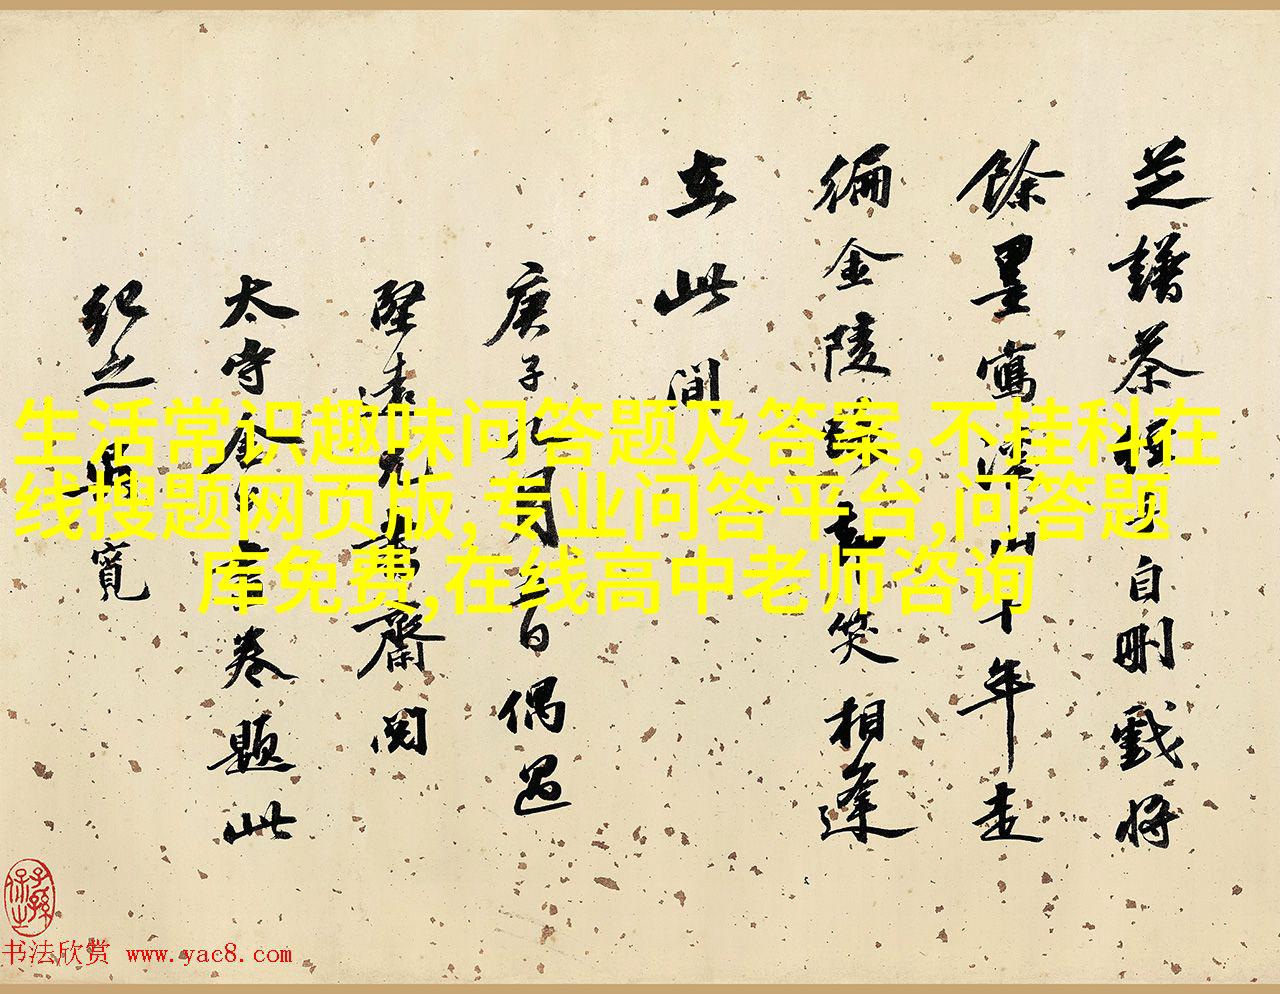 芝譜茶經手自删戲將
餘墨寫溪山十年走
徧金陵道
笑相逢
在此間
庚子九月三百偶過
堅
齋閱
太守
卷題此
紀之
寬
生活常识趣味问答题及答案,不挂科在
线搜题网页版,专业问答平台,问答题
库免费,在线高中老师咨询
子孫保之
书法欣赏 www.yac8.com